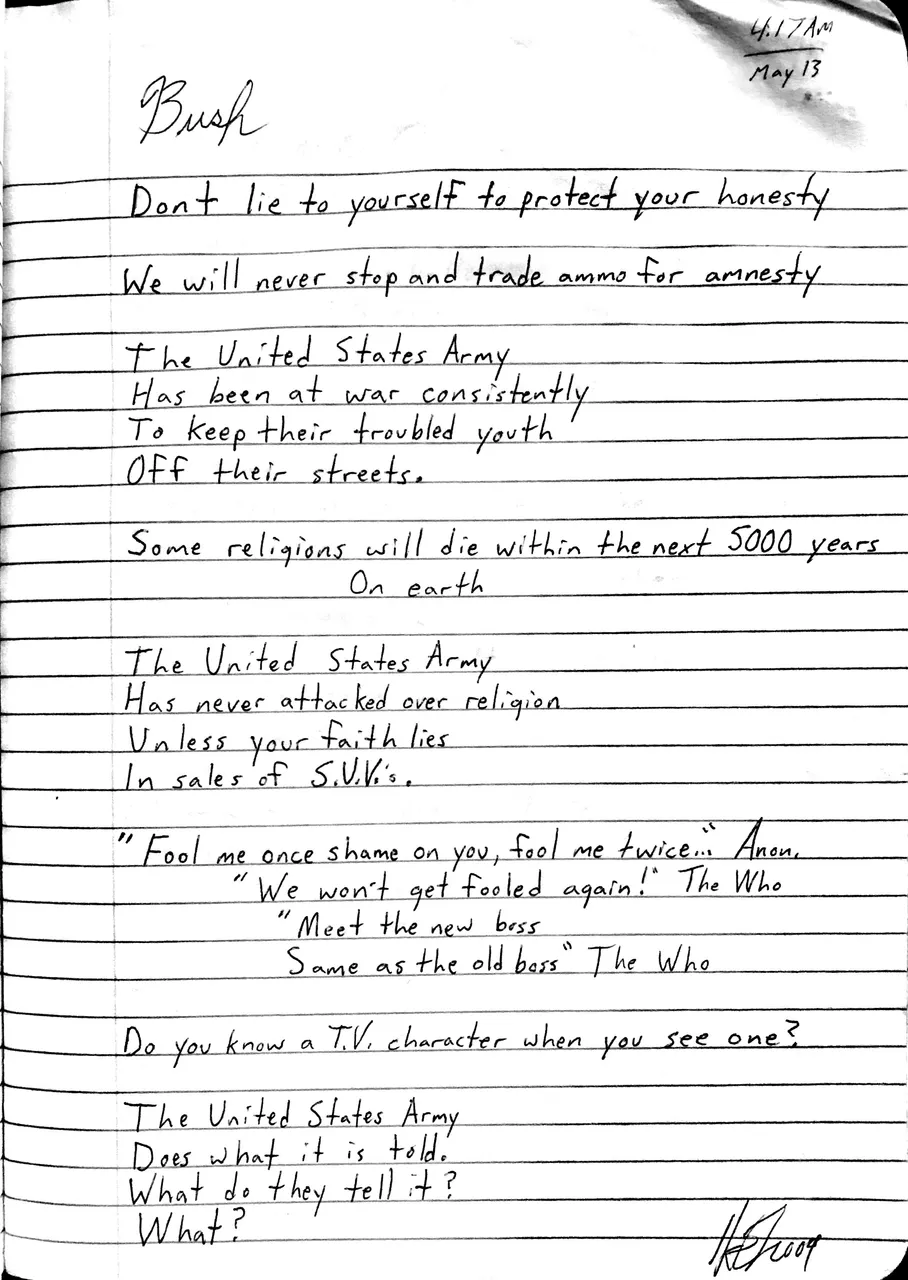 4:17AM
May 13
Bush
Dont lie to yourself to protect your honesty
We will never stop and trade ammo for amnesty
The United States Army
Has been at war consistently
To keep their troubled youth
Off their streets.
Some religions will die within the next 5000 years
On earth
The United States Army
Has never attacked over religion
Unless your faith lies
In sales of S.U.V.'s.
"Fool me once shame on you, fool me twice..." Anon.
"We won't get fooled again!" The Who
"Meet the new boss
Same as the old boss" The Who
Do you know a T.V. character when you see one?
The United States Army
Does what it is told.
What do they tell it?
What?
2004